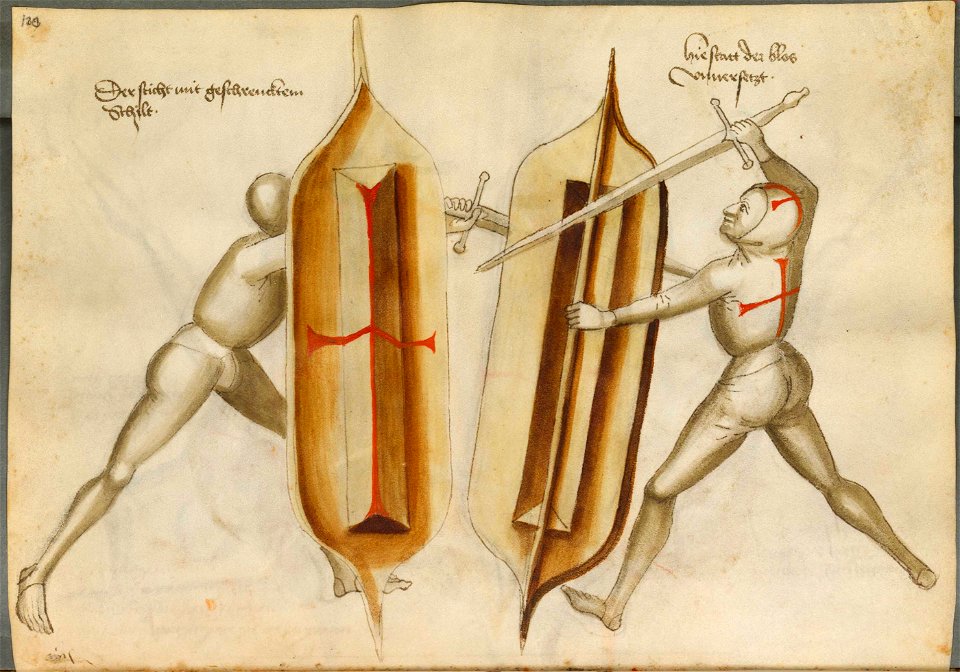 129
Der sticht mit geschrencktem
Schilt.
hie statt der blos
vnversetzt.